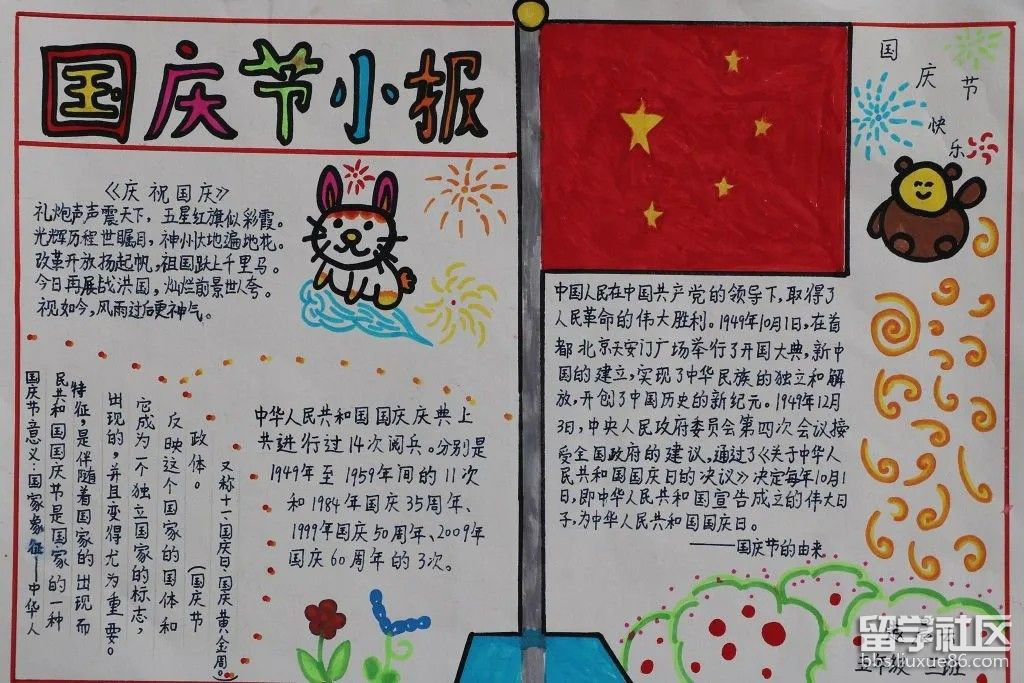 国庆节小报
《庆祝国庆》
礼炮声声震天下，五星红旗似彩霞。
光辉历程世瞩目，神州大地遍地花。
改革开放扬起帆，祖国跃上千里马。
今日再展战洪国，灿烂前景世人夸。
视如今，风雨过后更神气。
国庆节意义：国家象征——中华人
民共和国国庆节是国家的一种
特征，是伴随着国家的出现而
出现的，并且变得尤为重要。
它成为一个独立国家的标志，
反映这个国家的国体和
政体。（国庆节
又称十一、国庆日、国庆黄金周。）
中华人民共和国国庆庆典上
共进行过14次阅兵。分别是
1949年至1959年间的11次
和1984年国庆35周年、
1999年国庆50周年、2009年
国庆60周年的3次。
国庆节快乐
中国人民在中国共产党的领导下，取得了
人民革命的伟大胜利。1949年10月1日，在首
都北京天安门广场举行了开国大典，新中
国的建立，实现了中华民族的独立和解
放，开创了中国历史的新纪元。1949年12月
3日，中央人民政府委员会第四次会议接
受全国政府的建议，通过了《关于中华人
民共和国国庆日的决议》决定每年10月1
日，即中华人民共和国宣告成立的伟大日
子，为中华人民共和国国庆日。
——国庆节的由来
五年级 二班
留学社区
bbs.liuxue86.com